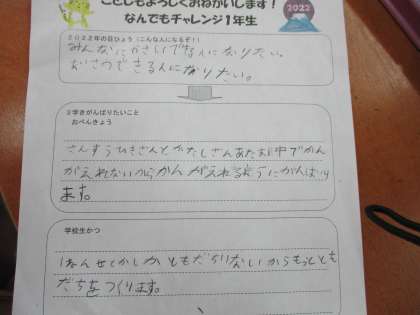 ことしもよろしくおねがいします！
なんでもチャレンジ1年生
2022
2022年の目ひょう（こんな人になるぞ！）
みんなに
人になりたい。
できる人になりたい。
3学きがんばりたいこと
おべんきょう
さんすうひきざんとかたしざんあたま中でかん
がえれないからかんがえれるようにがんばり
ます。
学校生かつ
はんせいかいしかともだちいないからもっととも
だちをつくります。